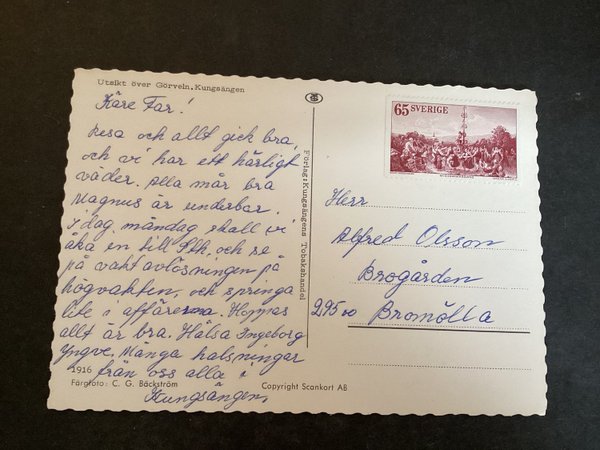 Utsikt över Görveln, Kungsängen
Käre Far!
Resa och allt gick bra,
och vi har ett härligt
väder. Alla mår bra
Magnus är underbar.
I dag, måndag skall vi
åka en till Sthlm, och se
på vaktavlösningen på
högvakten, och springa
lite i affärerna. Hoppas
allt är bra. Hälsa Ingeborg
Yngve. Många halsningar
från oss alla i
Kungsängen,
1916
Färgfoto: C. G. Bäckström
Copyright Scankort AB
Förlag: Kungsängens Tobakshandel
65 SVERIGE
Herr
Alfred Olsson
Brogården
295 00 Bromölla